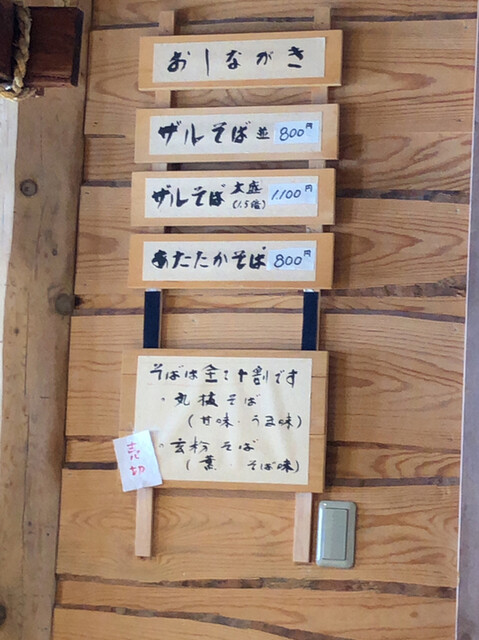 おしながき
ザルそば 並 800円
ザルそば 大盛(1.5倍) 1,100円
あたたかそば 800円
そばは全て十割です
・丸抜そば
(甘味・うま味)
・玄粉そば
(香・そば味)
売切